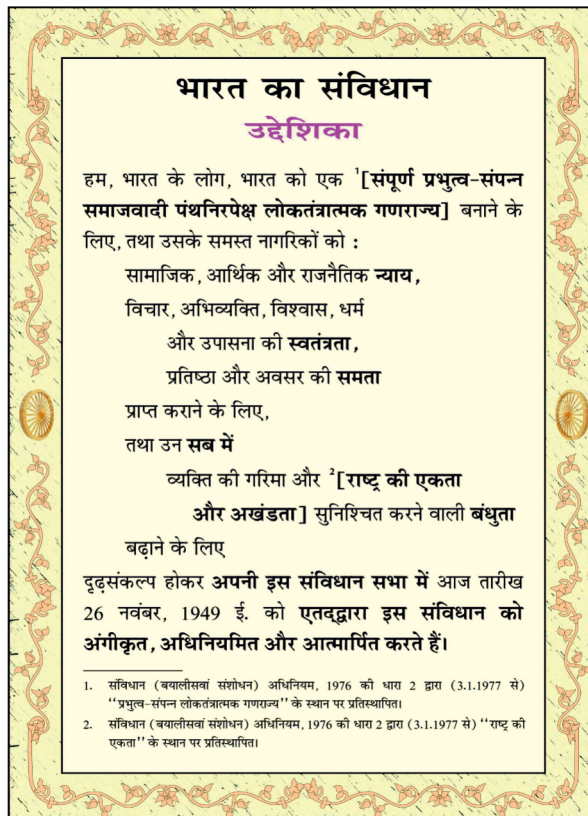 भारत का संविधान
उद्देशिका
हम, भारत के लोग, भारत को एक ¹[संपूर्ण प्रभुत्व-संपन्न
समाजवादी पंथनिरपेक्ष लोकतंत्रात्मक गणराज्य] बनाने के
लिए, तथा उसके समस्त नागरिकों को :
सामाजिक, आर्थिक और राजनैतिक न्याय,
विचार, अभिव्यक्ति, विश्वास, धर्म
और उपासना की स्वतंत्रता,
प्रतिष्ठा और अवसर की समता
प्राप्त कराने के लिए,
तथा उन सब में
व्यक्ति की गरिमा और ²[राष्ट्र की एकता
और अखंडता] सुनिश्चित करने वाली बंधुता
बढ़ाने के लिए
दृढ़संकल्प होकर अपनी इस संविधान सभा में आज तारीख
26 नवंबर, 1949 ई. को एतद्द्वारा इस संविधान को
अंगीकृत, अधिनियमित और आत्मार्पित करते हैं।
1. संविधान (बयालीसवां संशोधन) अधिनियम, 1976 की धारा 2 द्वारा (3.1.1977 से)
''प्रभुत्व-संपन्न लोकतंत्रात्मक गणराज्य'' के स्थान पर प्रतिस्थापित।
2. संविधान (बयालीसवां संशोधन) अधिनियम, 1976 की धारा 2 द्वारा (3.1.1977 से) ''राष्ट्र की
एकता'' के स्थान पर प्रतिस्थापित।